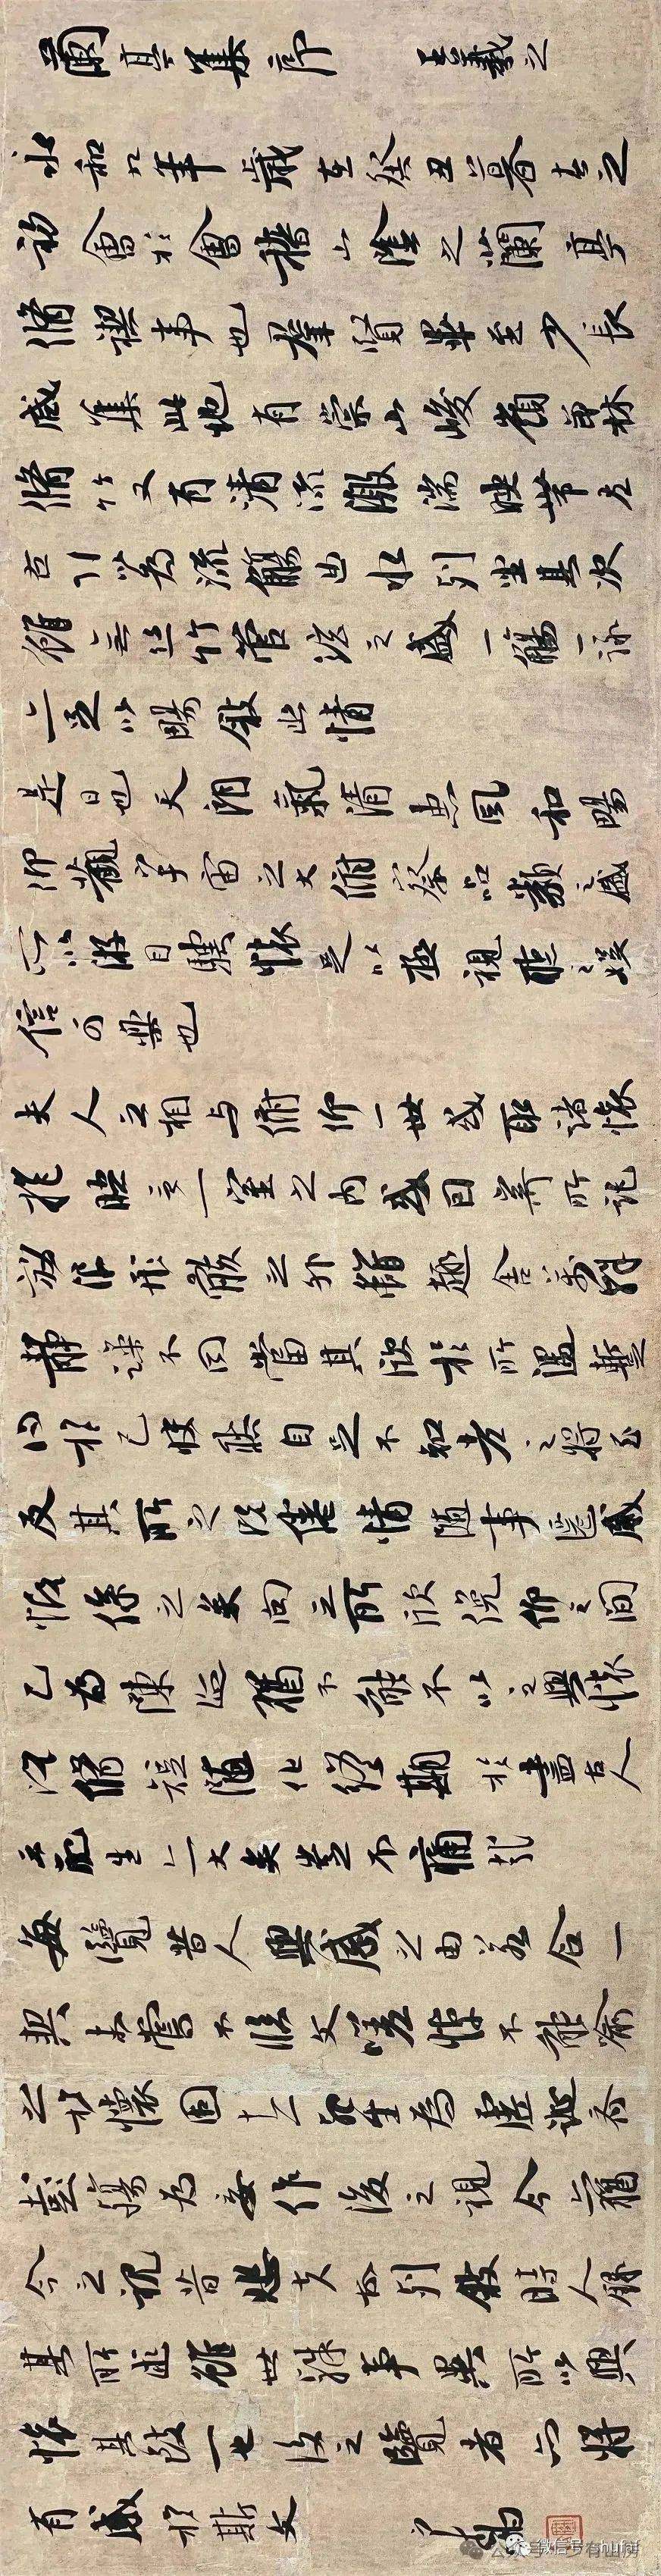 蘭亭集序 王羲之
永和九年歲在癸丑暮春之
初會於會稽山陰之蘭亭
脩禊事也羣賢畢至少長
咸集此地有崇山峻嶺茂林
脩竹又有清流激湍映帶左
右引以為流觴曲水列坐其次
雖無絲竹管弦之盛一觴一詠
亦足以暢敘幽情
是日也天朗氣清惠風和暢
仰觀宇宙之大俯察品類之盛
所以遊目騁懷足以極視聽之娛
信可樂也
夫人之相與俯仰一世或取諸懷
抱晤言一室之內或因寄所託
放浪形骸之外雖趣舍萬殊
靜躁不同當其欣於所遇暫
得於己快然自足不知老之將至
及其所之既倦情隨事遷感
慨係之矣向之所欣俛仰之間
已為陳迹猶不能不以之興懷
況脩短隨化終期於盡古人
云死生亦大矣豈不痛哉
每覽昔人興感之由若合一
契未嘗不臨文嗟悼不能喻
之於懷固知一死生為虛誕齊
彭殤為妄作後之視今亦猶
今之視昔悲夫故列敘時人錄
其所述雖世殊事異所以興
懷其致一也後之覽者亦將
有感於斯文